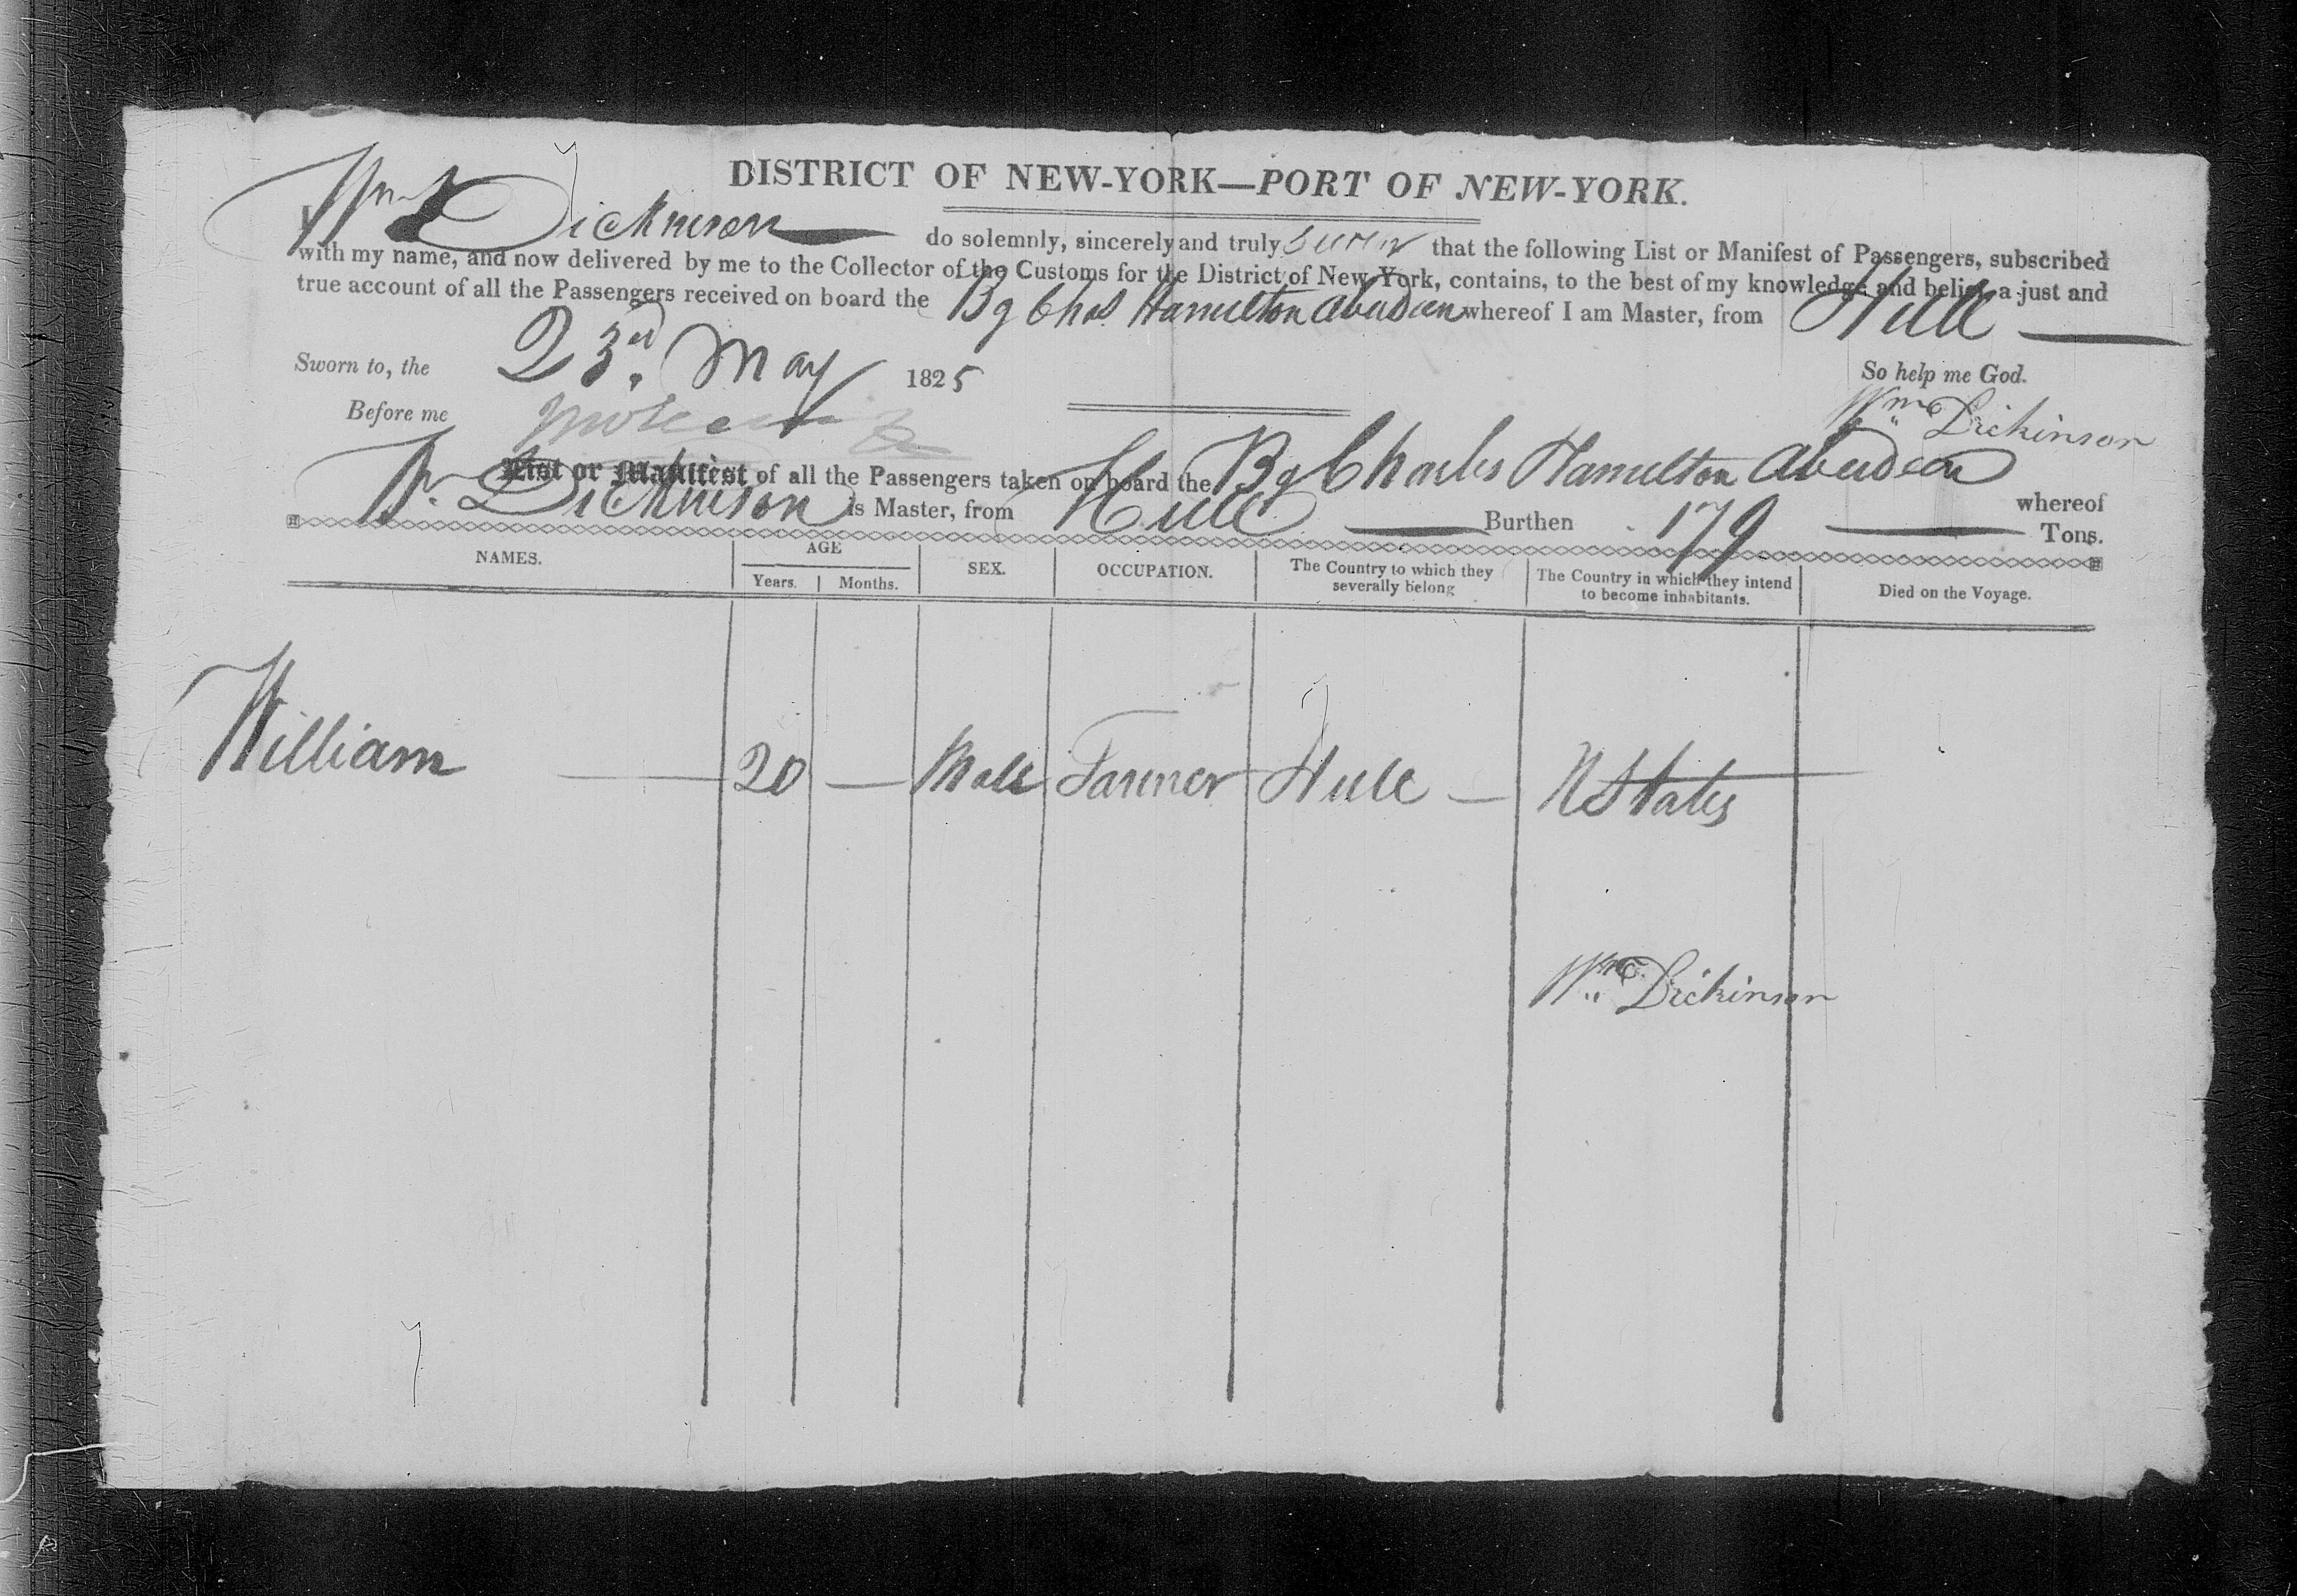 DISTRICT OF NEW-YORK—PORT OF NEW-YORK.
I Wm Dickinson do solemnly, sincerely and truly swear that the following List or Manifest of Passengers, subscribed
with my name, and now delivered by me to the Collector of the Customs for the District of New York, contains, to the best of my knowledge and belief, a just and
true account of all the Passengers received on board the Bg Chas. Hamilton Aberdeen whereof I am Master, from Hull
Sworn to, the 23rd May 1825 So help me God.
Before me Wm Dickinson
List or Manifest of all the Passengers taken on board the Bg Charles Hamilton Aberdeen whereof
Wm Dickinson is Master, from Hull Burthen 179 Tons.
NAMES. AGE Years. Months. SEX. OCCUPATION. The Country to which they severally belong The Country in which they intend to become inhabitants. Died on the Voyage.
William 20 — Male Farmer Hull — U States
Wm Dickinson